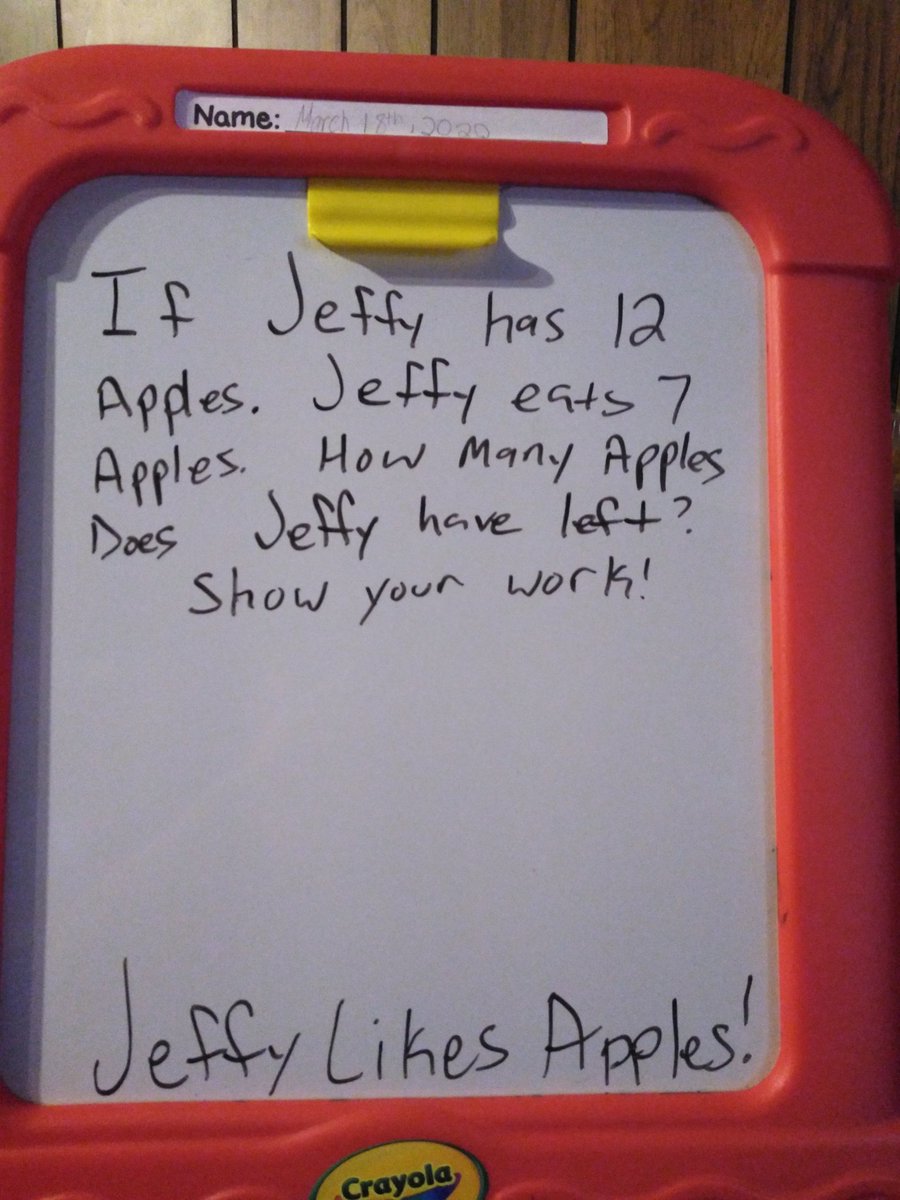 Name: March 18th, 2020
If Jeffy has 12
Apples. Jeffy eats 7
Apples. How Many Apples
Does Jeffy have left?
Show your work!
Jeffy Likes Apples!
Crayola